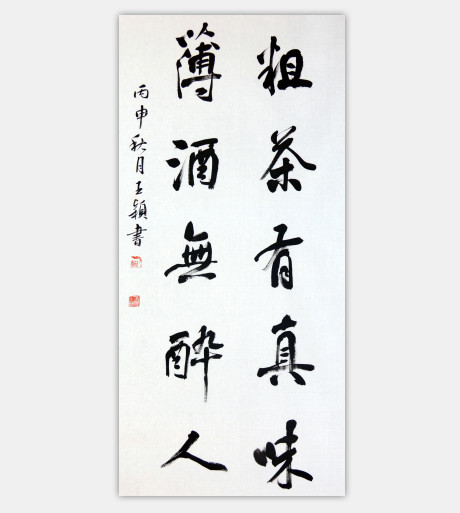 粗茶有真味
簿酒無酔人
丙申秋月王穎書